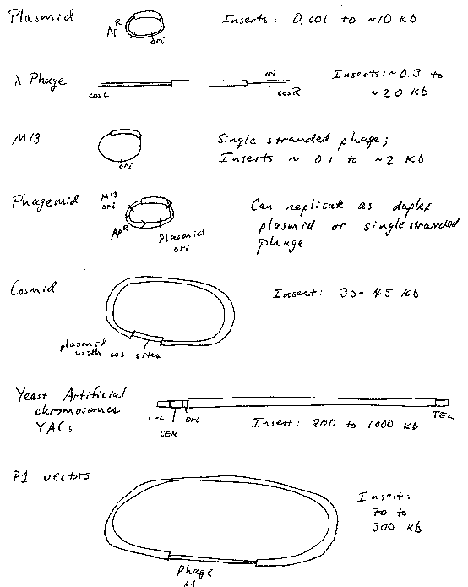 Plasmid
Ap^R
ori
Inserts: 0.001 to ~10 kb
λ Phage
cosL
ori
cosR
Inserts: ~0.3 to
~20 kb
M13
ori
Single stranded phage;
Inserts ~ 0.1 to ~2 kb
Phagemid
M13
ori
Ap^R
Plasmid
ori
Can replicate as duplex
plasmid or single stranded
phage
Cosmid
plasmid
with cos sites
Insert: 35-45 kb
Yeast Artificial
chromosomes
YACs
CEN
ori
TEL
Insert: 200 to 1000 kb
P1 vectors
Phage
P1
Insert:
70 to
300 kb